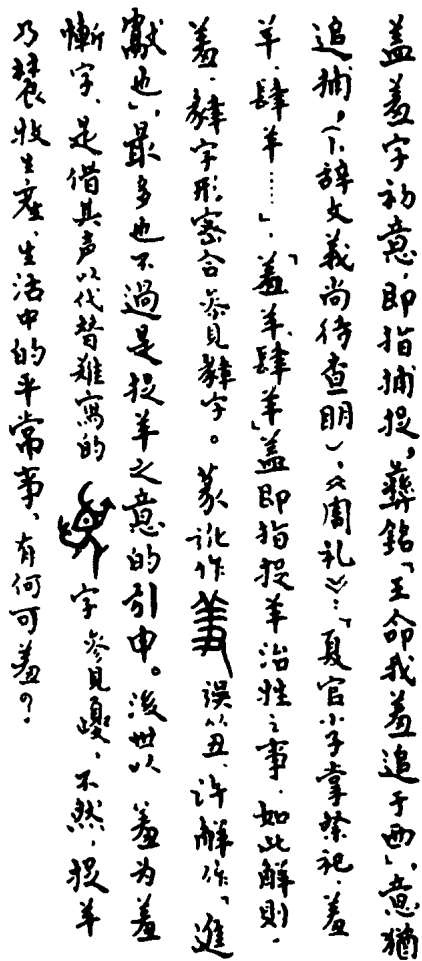 盖羞字初意，即指捕捉，彝銘「王命我羞追于西」，意猶
追捕，（卜辞文義尚待查明）、《周礼》：「夏官小子掌祭祀，羞
羊、肆羊……」，「羞羊、肆羊」盖即指捉羊治牲之事，如此解则，
羞、肆字形密合參見肆字。篆讹作羞誤从丑、許解作「進
獻也」，最多也不過是捉羊之意的引申。後世以羞为羞
慚字，是借其声以代替難寫的字參見夒，不然，捉羊
乃襲收生産、生活中的平常事，有何可羞？